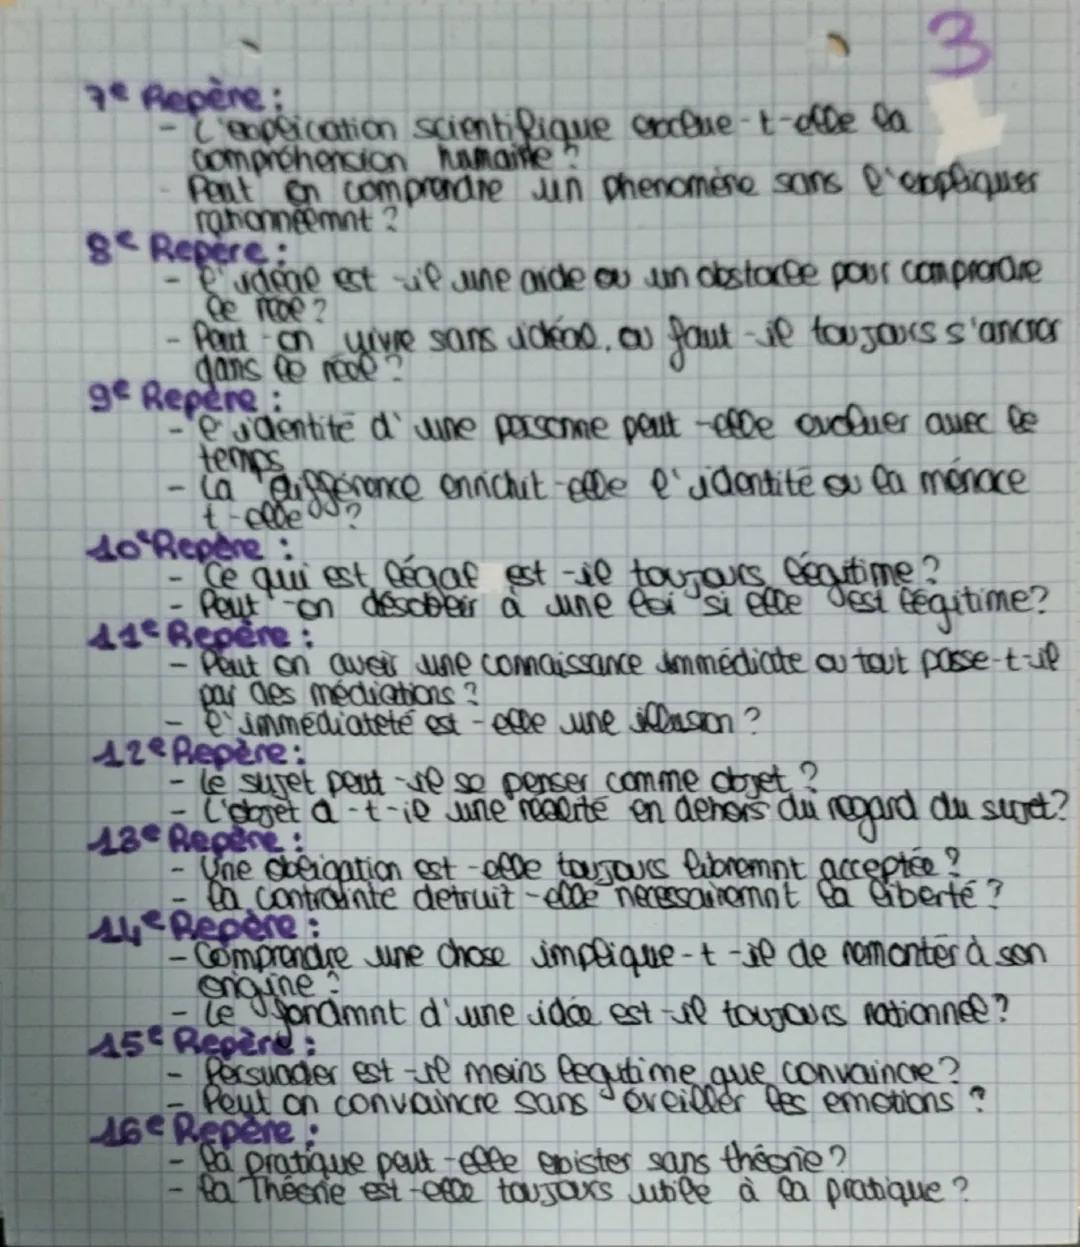 3
7e Repère :
- L'explication scientifique exclue-t-elle la
compréhension humaine ?
- Peut on comprendre un phenomène sans l'expliquer
rationnelemnt ?
8e Repère :
- l'idéal est-il une aide ou un obstacle pour comprendre
le réel ?
- Peut-on vivre sans idéal, ou faut-il toujours s'ancrer
dans le réel ?
9e Repère :
- l'identité d'une personne peut-elle evoluer avec le
temps
- La différence enrichit-elle l'identité ou la ménace
t-elle ?
10e Repère :
- Ce qui est légal est-il toujours légitime ?
- Peut-on désobeir à une loi si elle est légitime ?
11e Repère :
- Peut on avoir une connaissance immédiate ou tout passe-t-il
par des médiations ?
- l'immédiateté est-elle une illusion ?
12e Repère :
- Le sujet peut-il se penser comme objet ?
- L'objet a-t-il une réalité en dehors du regard du sujet ?
13e Repère :
- Une obligation est-elle toujours libremnt acceptée ?
- la contrainte detruit-elle necessairemnt la liberté ?
14e Repère :
- Comprendre une chose implique-t-il de remonter à son
origine ?
- Le fondamnt d'une idée est-il toujours rationnel ?
15e Repère :
- Persuader est-il moins legitime que convaincre ?
- Peut on convaincre sans éveiller les emotions ?
16e Repère :
- la pratique peut-elle exister sans théorie ?
- la Théorie est-elle toujours utile à la pratique ?